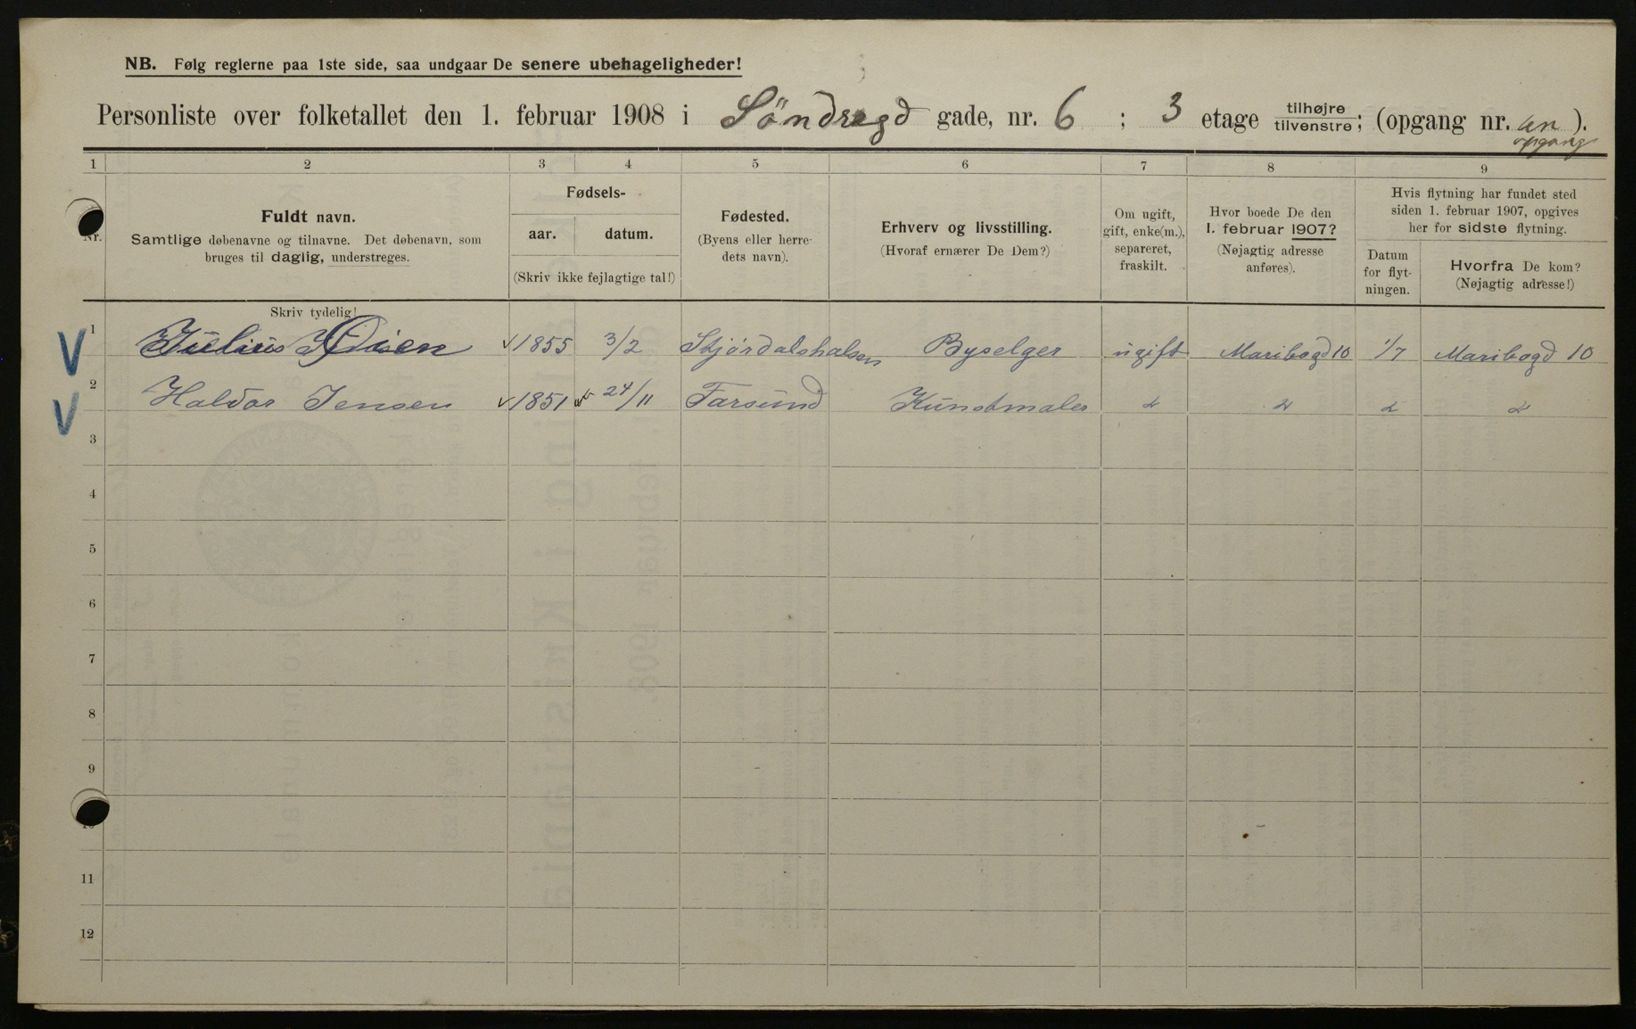 NB. Følg reglerne paa 1ste side, saa undgaar De senere ubehageligheder!
Personliste over folketallet den 1. februar 1908 i Söndregd gade, nr. 6 ; 3 etage tilhøjre tilvenstre; (opgang nr. en opgang ).
1 2 3 4 5 6 7 8 9
Nr.
Fuldt navn.
Samtlige døbenavne og tilnavne. Det døbenavn, som
bruges til daglig, understreges.
Fødsels-
aar. datum.
(Skriv ikke fejlagtige tal!)
Fødested.
(Byens eller herre-
dets navn).
Erhverv og livsstilling.
(Hvoraf ernærer De Dem?)
Om ugift,
gift, enke(m.),
separeret,
fraskilt.
Hvor boede De den
1. februar 1907?
(Nøjagtig adresse
anføres).
Hvis flytning har fundet sted
siden 1. februar 1907, opgives
her for sidste flytning.
Datum
for flyt-
ningen.
Hvorfra De kom?
(Nøjagtig adresse!)
Skriv tydelig!
V 1 Julius Öien 1855 3/2 Stjördalshalsen Byselger ugift Maribogd 10 1/7 Maribogd 10
V 2 Haldor Jensen 1851 24/11 Farsund Kunstmaler
3
4
5
6
7
8
9
10
11
12